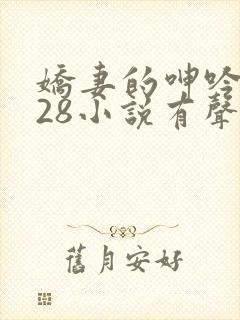 嬌妻的呻吟
28小說有聲
舊月安好